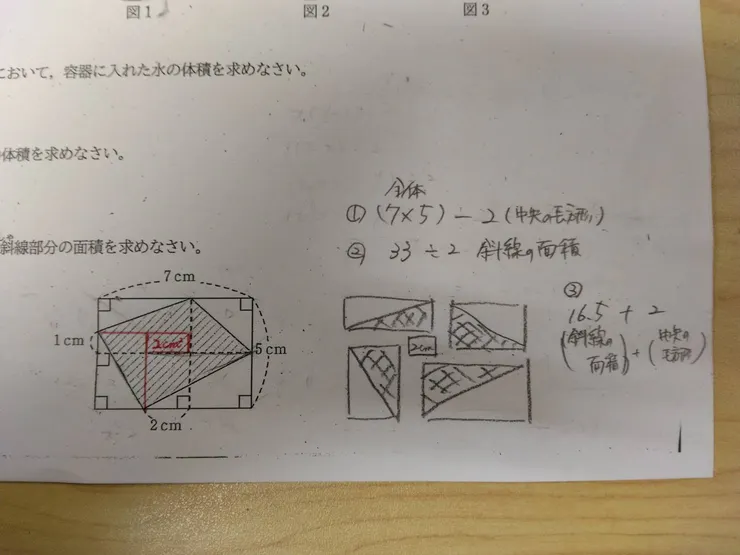 図1
図2
図3
において，容器に入れた水の体積を求めなさい。
体積を求めなさい。
斜線部分の面積を求めなさい。
7cm
1cm
2cm²
5cm
2cm
全体
① (7×5) − 2 (中央の長方形)
② 33 ÷ 2 斜線の面積
2cm
③
16.5 + 2
(斜線の面積) + (中央の長方形)